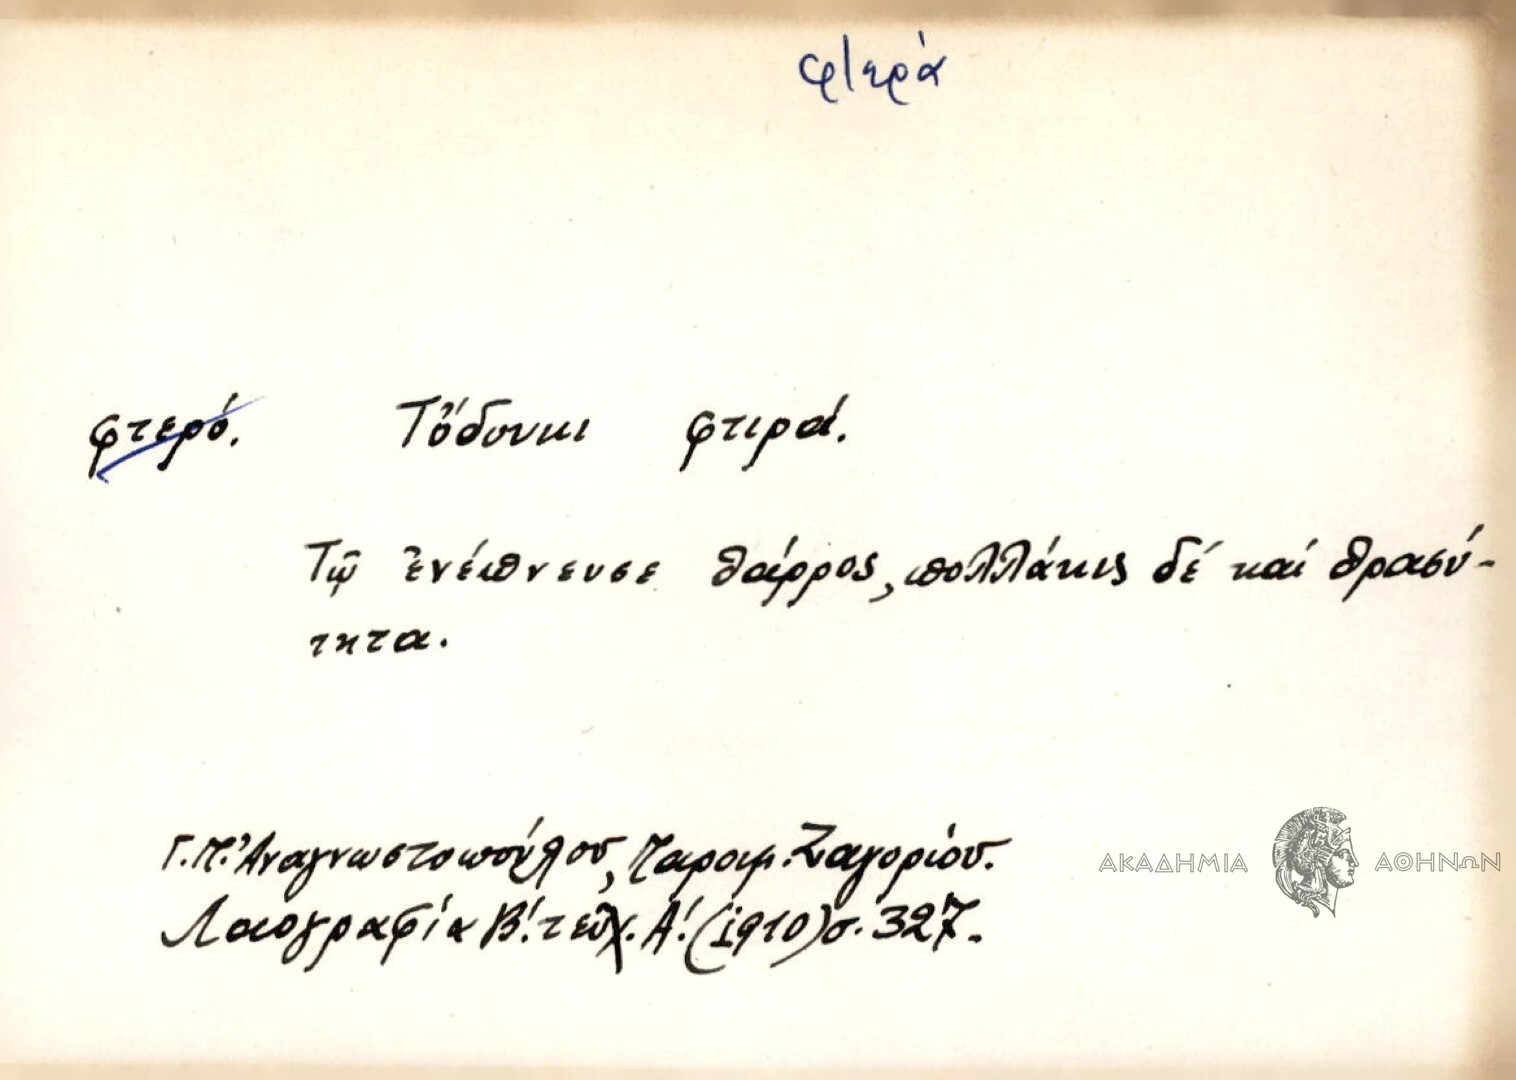 φτερά
φτερό. Τὄδουκι φτιρά.
Τῷ ἐνέπνευσε θάρρος, πολλάκις δέ καί θρασύ-
τητα.
Γ.Π. Ἀναγνωστοπούλου, Παροιμ. Ζαγορίου.
Λαογραφία Β΄. τεῦχ. Α΄. (1910) σ. 327.
ΑΚΑΔΗΜΙΑ ΑΘΗΝΩΝ